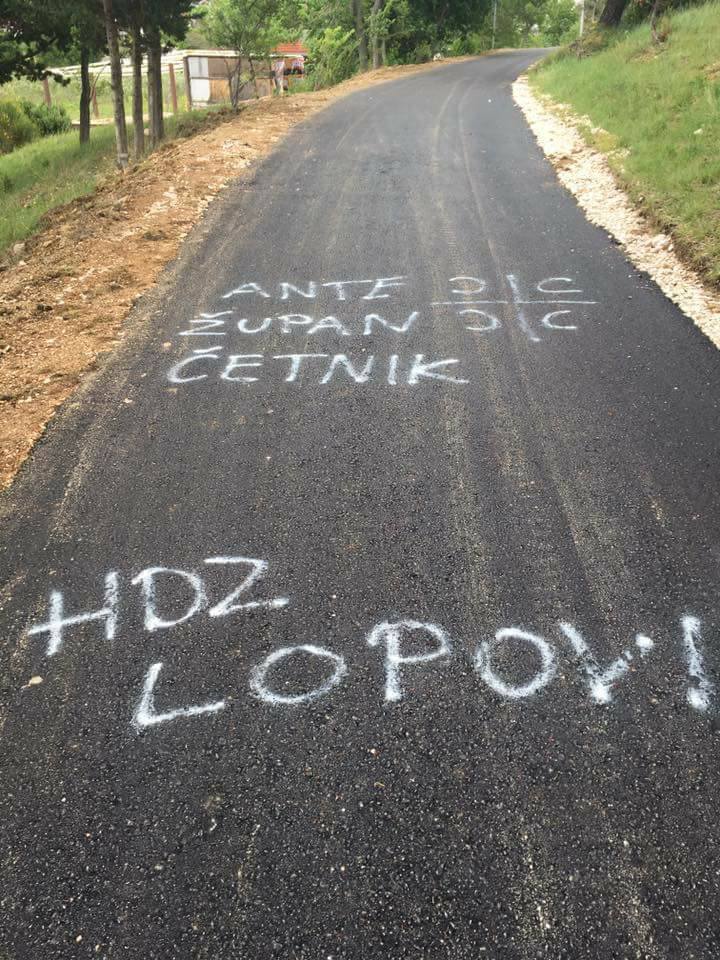 ANTE
ŽUPAN
ČETNIK
HDZ
LOPOVI